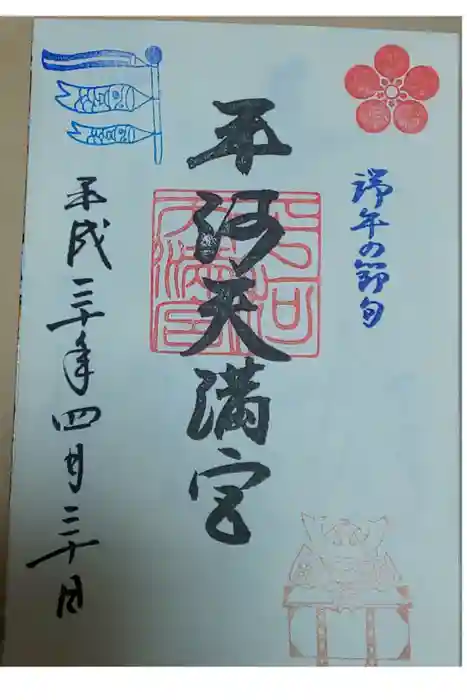 端午の節句
平河天満宮
平成三十年四月三十日